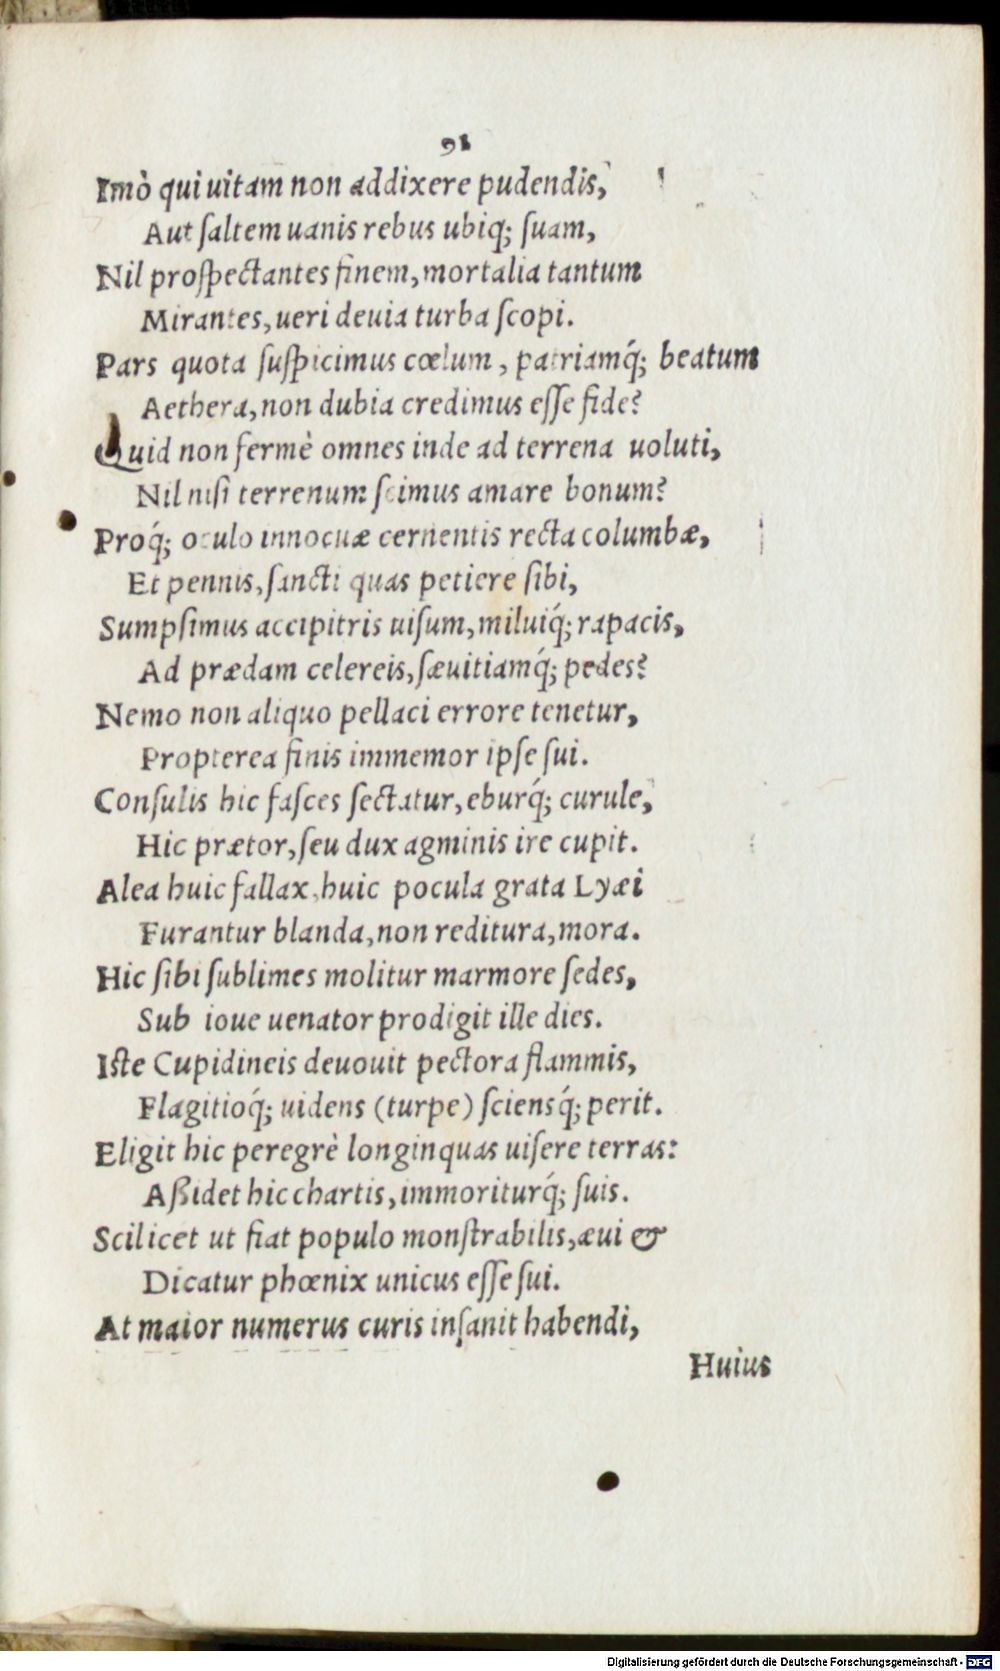 91
Imò qui uitam non addixere pudendis,
Aut ſaltem uanis rebus ubiq; ſuam,
Nil proſpectantes finem, mortalia tantum
Mirantes, ueri deuia turba ſcopi.
Pars quota ſuſpicimus cœlum, patriamq́; beatum
Aethera, non dubia credimus eſſe fide?
Quid non fermè omnes inde ad terrena uoluti,
Nil niſi terrenum ſcimus amare bonum?
Proq́; oculo innocuæ cernentis recta columbæ,
Et pennis, ſancti quas petiere ſibi,
Sumpſimus accipitris uiſum, miluiq́; rapacis,
Ad prædam celereis, ſæuitiamq́; pedes?
Nemo non aliquo pellaci errore tenetur,
Propterea finis immemor ipſe ſui.
Conſulis hic faſces ſectatur, eburq́; curule,
Hic prætor, ſeu dux agminis ire cupit.
Alea huic fallax, huic pocula grata Lyæi
Furantur blanda, non reditura, mora.
Hic ſibi ſublimes molitur marmore ſedes,
Sub ioue uenator prodigit ille dies.
Iſte Cupidineis deuouit pectora flammis,
Flagitioq́; uidens (turpe) ſciensq́; perit.
Eligit hic peregrè longinquas uiſere terras:
Aßidet hic chartis, immoriturq́; ſuis.
Scilicet ut fiat populo monſtrabilis, æui &
Dicatur phœnix unicus eſſe ſui.
At maior numerus curis inſanit habendi,
Huius
Digitalisierung gefördert durch die Deutsche Forschungsgemeinschaft - DFG